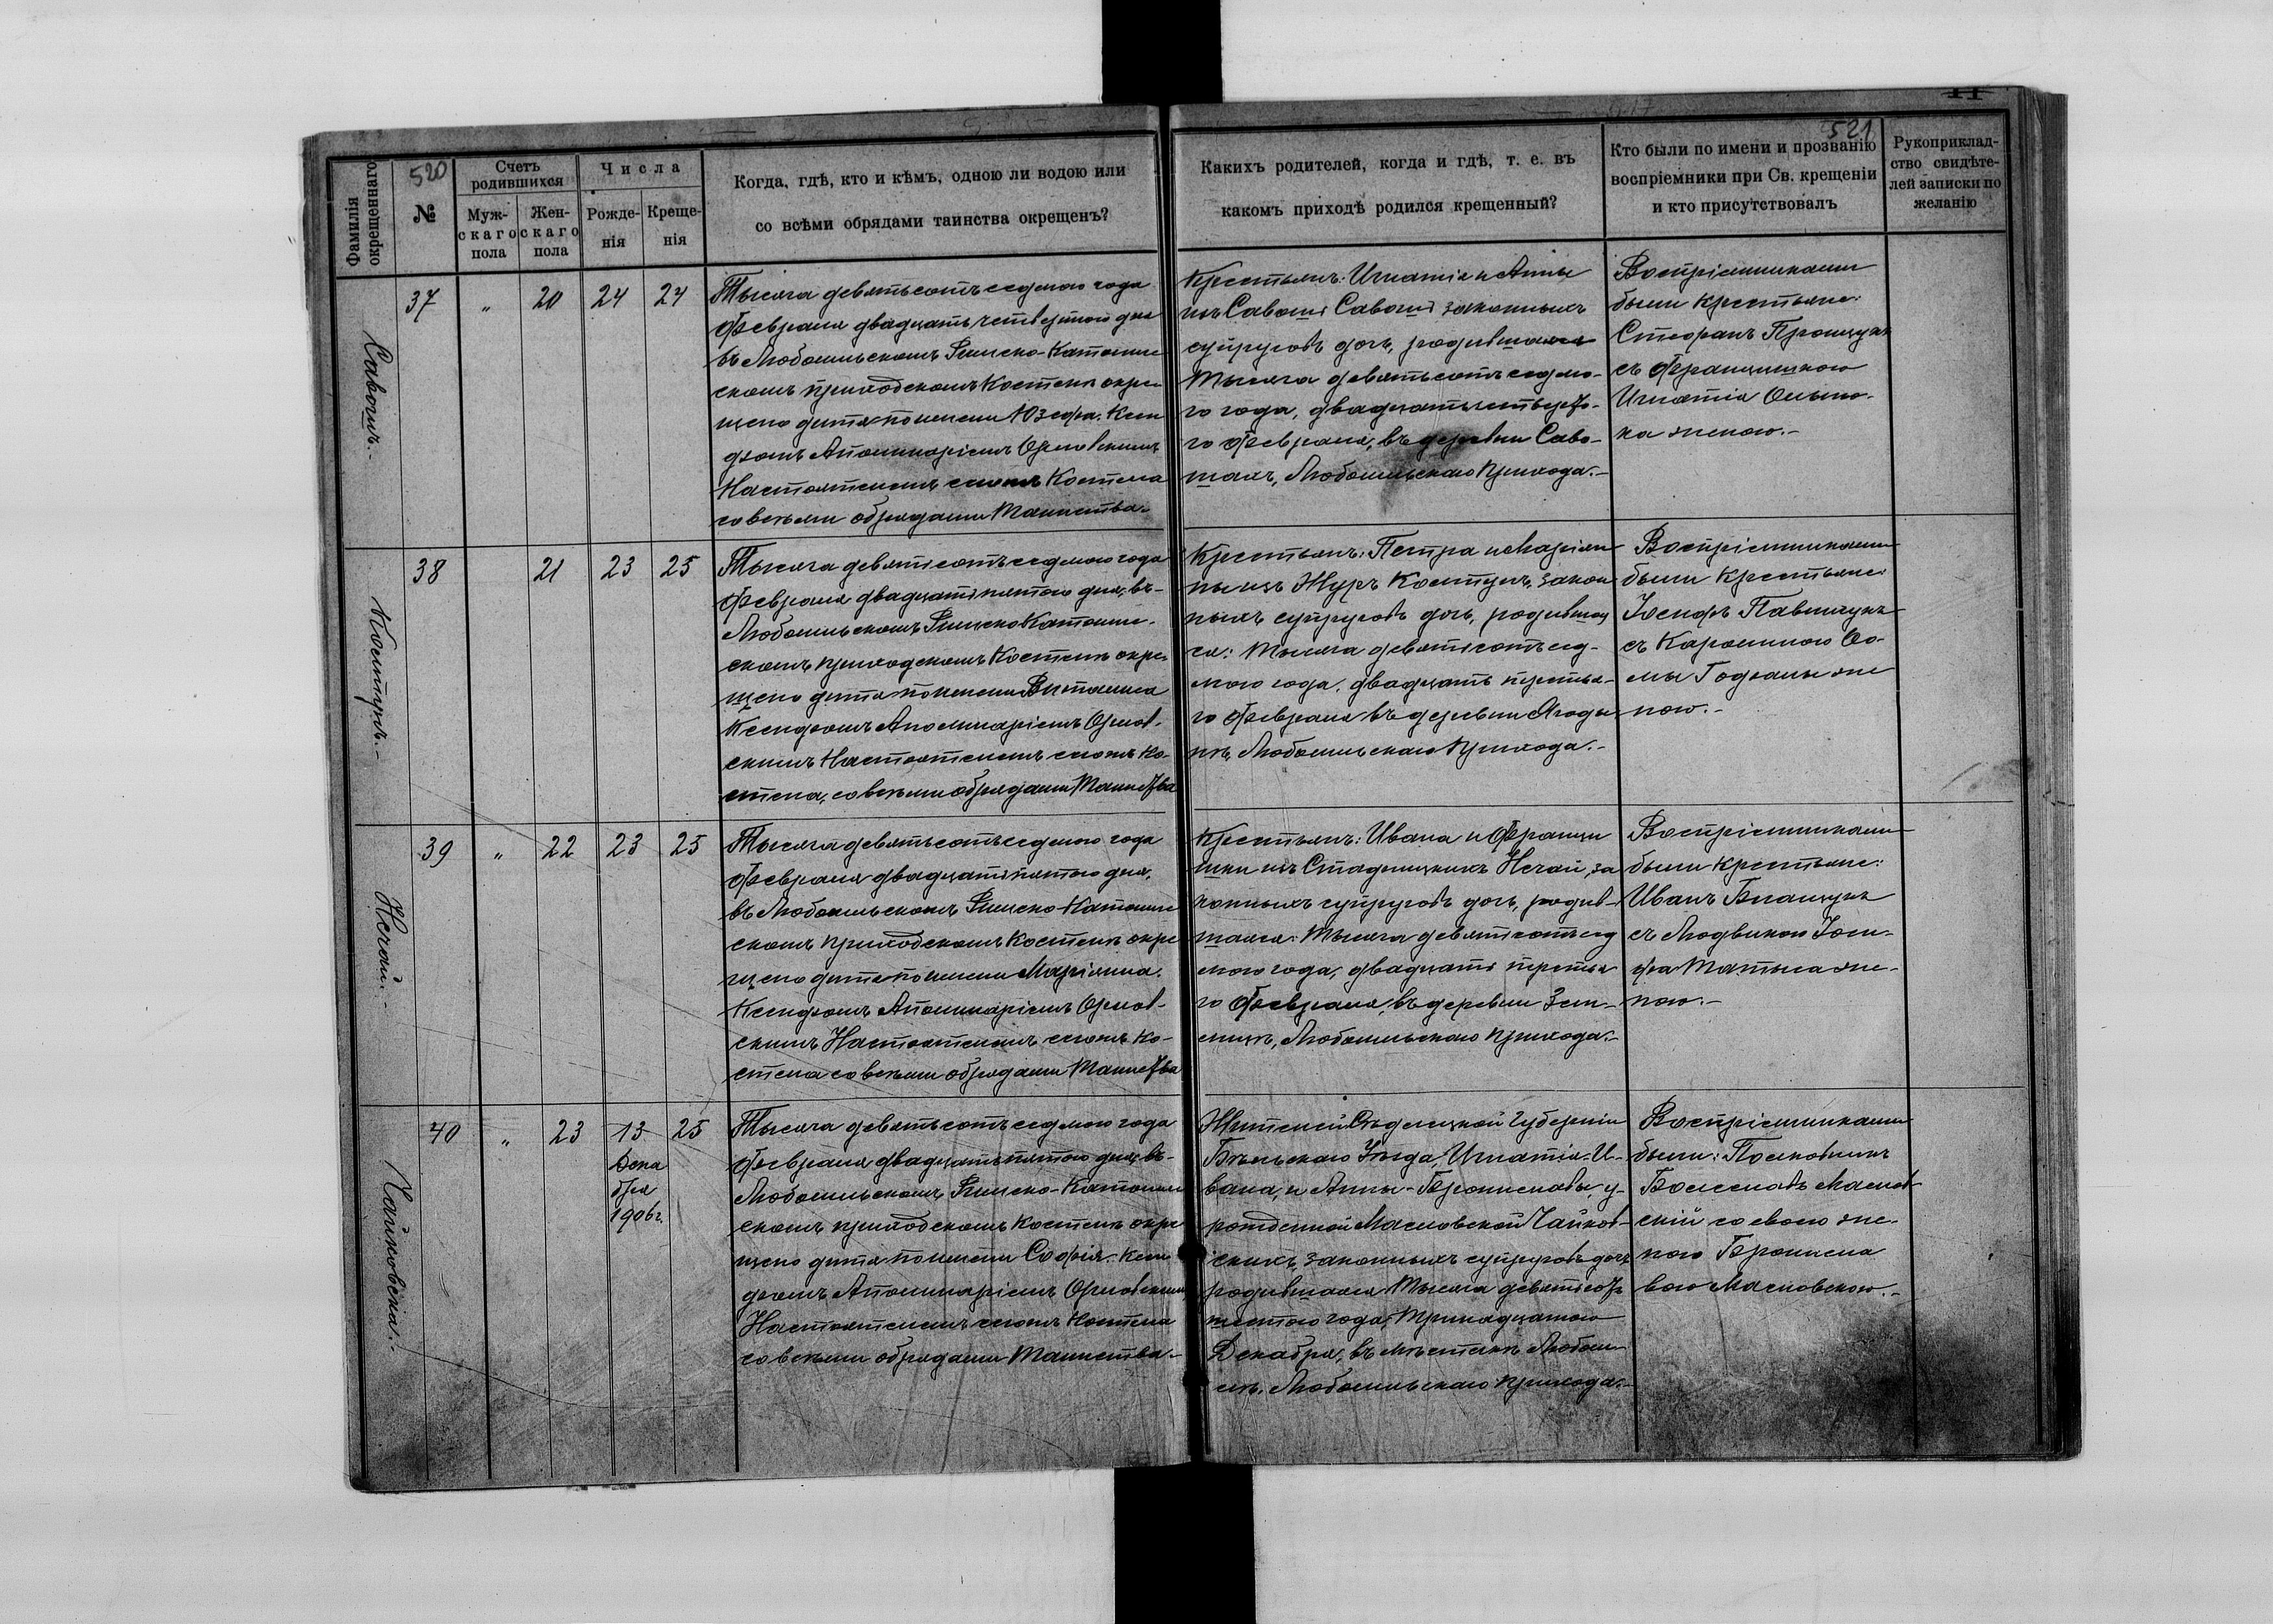 520
Фамилія окрещеннаго
№
Счетъ родившихся
Муж-
скаго
пола
Жен-
скаго
пола
Числа
Рожде-
нія
Креще-
нія
Когда, гдѣ, кто и кѣмъ, одною ли водою или
со всѣми обрядами таинства окрещенъ?
521
Какихъ родителей, когда и гдѣ, т. е. въ
какомъ приходѣ родился крещенный?
Кто были по имени и прозванію
воспріемники при Св. крещеніи
и кто присутствовалъ
Рукоприклад-
ство свидѣте-
лей записки по
желанію
Савошъ.-
37 " 20 24 24
Тысяча девятьсотъ седмого года
Февраля двадцать четвертого дня
въ Любомльскомъ Римско-Католиче
скомъ приходскомъ Костелѣ окре
щено дитя по имени Юзефа. Ксен
дзомъ Аполинаріемъ Орловскимъ
Настоятелемъ сего Костела
со всѣми обрядами Таинства.-
Крестьянъ: Игнатія и Анны
изъ Савошъ Савошъ законныхъ
супруговъ дочь, родившаяся
Тысяча девятьсотъ седмо-
го года, двадцать четверто-
го Февраля, въ деревни Саво-
шахъ, Любомльскаго прихода.-
Воспріемниками
были крестьяне:
Стефанъ
съ Францишкою
Игнатія
ка женою.-
Костуръ.-
38 21 23 25
Тысяча девятьсотъ седмого года
Февраля двадцать пятого дня, въ-
Любомльскомъ Римско Католиче-
скомъ приходскомъ Костелѣ окре-
щено дитя по имени Виталиса
Ксендзомъ Аполинаріемъ Орлов-
скимъ Настоятелемъ сего Ко-
стела, со всѣми обрядами Таинства
Крестьянъ: Петра и Маріян
ны изъ Журъ Костуръ, закон
ныхъ супруговъ дочь, родившая
ся: Тысяча девятьсотъ сед-
мого года, двадцать третья-
го Февраля въ деревни Ягоды-
нѣ, Любомльскаго прихода.-
Воспріемниками
были крестьяне:
Іосифъ Павлищукъ
съ Каролиною Ѳо-
мы же
ною.-
Нечай.-
39 " 22 23 25
Тысяча девятьсотъ седмого года
Февраля двадцать пятого дня,
въ Любомльскомъ Римско-Католиче
скомъ приходскомъ Костелѣ окре
щено дитя по имени Маріянна.
Ксендзомъ Аполинаріемъ Орлов-
скимъ Настоятелемъ сего Ко-
стела со всѣми обрядами Таинства
Крестьянъ: Ивана и Францы
шки изъ Стадницкихъ Нечай, за
конныхъ супруговъ дочь, родив-
шаяся: Тысяча девятьсотъ сед
мого года, двадцать третья
го Февраля, въ деревни Зем-
лицѣ, Любомльскаго прихода.-
Воспріемниками
были крестьяне:
Иванъ Влащукъ
съ Людвикою Іоси-
фа же-
ною.-
Чайковска.-
40 " 23 13 25
Дека
бря
1906г.
Тысяча девятьсотъ седмого года
Февраля двадцать пятого дня, въ-
Любомльскомъ Римско-Католиче
скомъ приходскомъ Костелѣ окре
щено дитя по имени Софія. Ксен
дзомъ Аполинаріемъ Орловскимъ
Настоятелемъ сего Костела
со всѣми обрядами Таинства.-
Жителей Сѣдлецкой Губерніи
Бѣльскаго Уѣзда, Игнатія-И-
вана, и Анны-Брониславы, у-
рожденной Масловской Чайков-
скихъ, законныхъ супруговъ дочь
родившаяся Тысяча девятьсотъ
шестого года, Тринадцатого
Декабря, въ мѣстечкѣ Любом-
лѣ, Любомльскаго прихода.-
Воспріемниками
были: Полковникъ
Болеславъ Маслов-
скій со своею же-
ною Бронисла
вою Масловскою.-